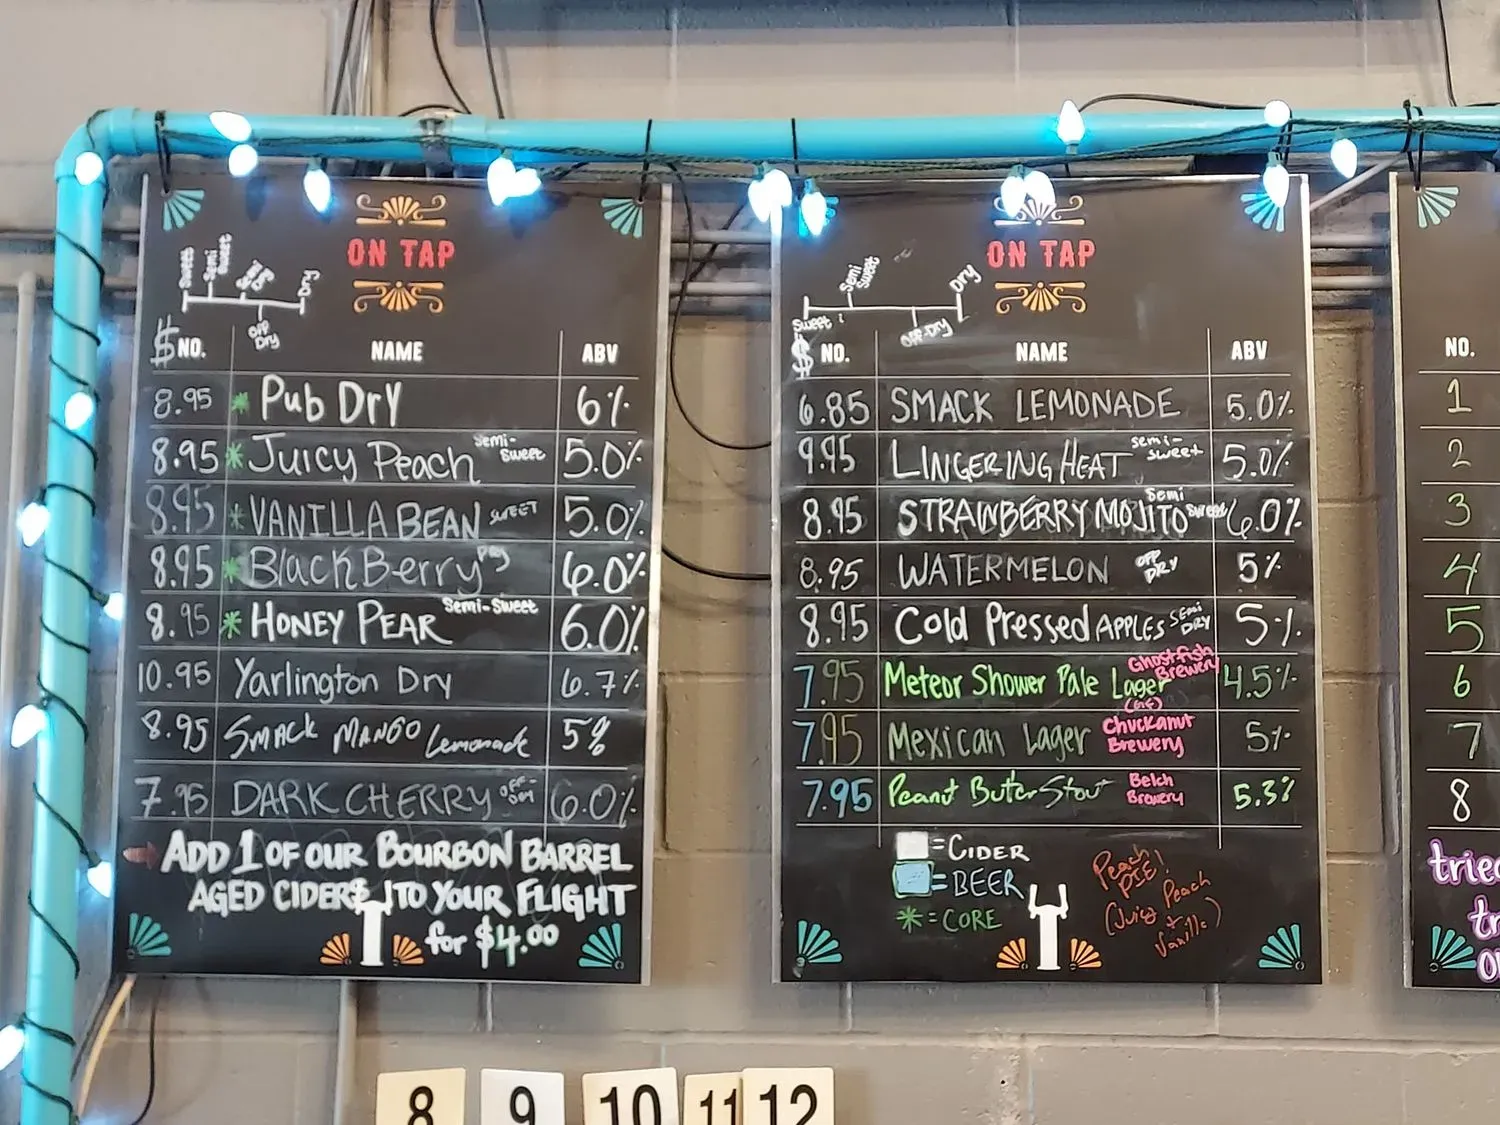 ON TAP
Sweet Semi Sweet Dry
Off Dry
$ NO. NAME ABV
8.95 * Pub Dry 6%
8.95 * Juicy Peach Semi-Sweet 5.0%
8.95 * VANILLA BEAN SWEET 5.0%
8.95 * BlackBerry Dry 6.0%
8.95 * HONEY PEAR Semi-Sweet 6.0%
10.95 Yarlington Dry 6.7%
8.95 SMACK MANGO Lemonade 5%
7.95 DARK CHERRY OFF-DRY 6.0%
ADD 1 OF OUR BOURBON BARREL
AGED CIDERS TO YOUR FLIGHT
for $4.00
ON TAP
Sweet Semi Sweet Off-Dry Dry
$ NO. NAME ABV
6.85 SMACK LEMONADE 5.0%
9.95 LINGERING HEAT semi-sweet 5.0%
8.95 STRAWBERRY MOJITO Semi Sweet 6.0%
8.95 WATERMELON OFF DRY 5%
8.95 Cold Pressed APPLES SEMI DRY 5%
7.95 Meteor Shower Pale Lager (GF) Ghostfish Brewery 4.5%
7.95 Mexican Lager Chuckanut Brewery 5%
7.95 Peanut Butter Stout Belch Brewery 5.3%
= CIDER
= BEER
* = CORE
Peach PIE!
(Juicy Peach
+ Vanilla)
NO.
1
2
3
4
5
6
7
8
8 9 10 11 12